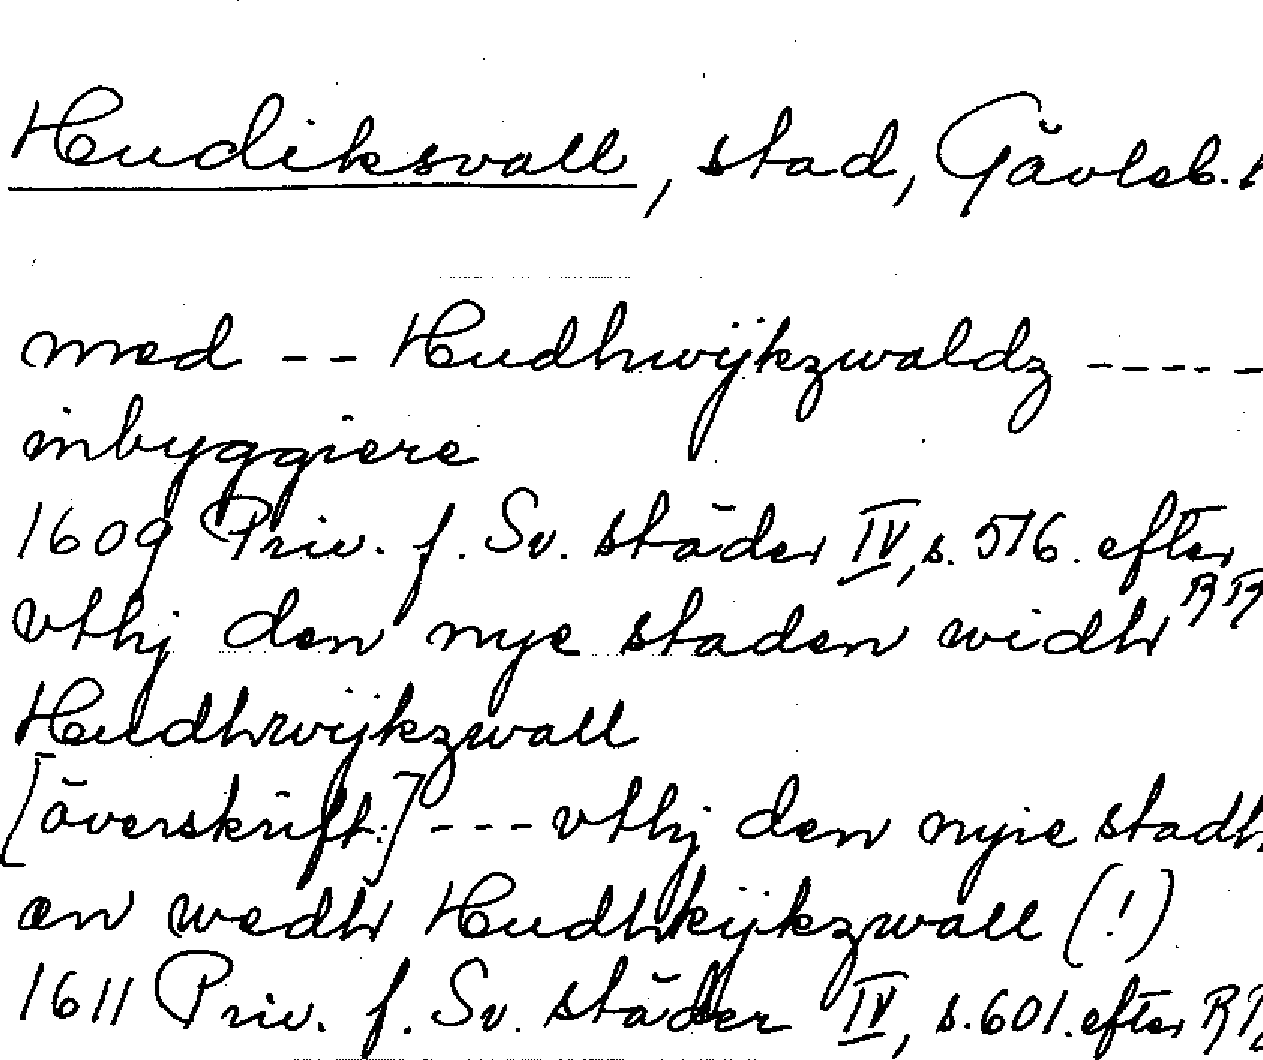 Hudiksvall, stad, Gävleb.
med -- Hudhwijkzwaldz -----
inbyggiere
1609 Priv. f. Sv. städer IV, s. 576. efter RR
vthj den nye staden widh
Hudhwijkzwall
[överskrift:] --- vthj den nyie stadh
en wedh Hudhkijkzwall (!)
1611 Priv. f. Sv. städer IV, s. 601. efter RR